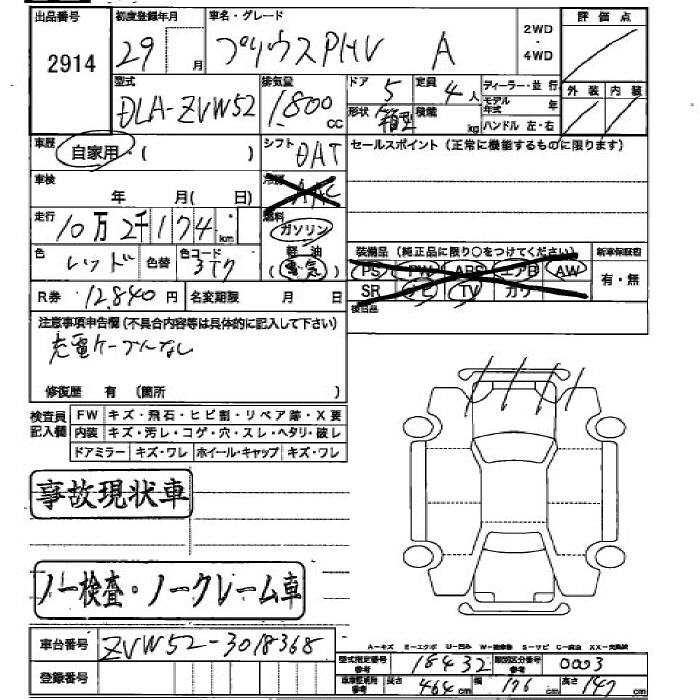 出品番号 初度登録年月 車名・グレード 2WD・4WD 評価点
2914 29 月 プリウスPHV A
型式 排気量 ドア 5 定員 4人 ディーラー・並行 外装 内装
DLA-ZVW52 1800cc 形状 箱型 積載 kg モデル年式 年
ハンドル 左・右
車歴 自家用・( ) シフト DAT セールスポイント(正常に機能するものに限ります)
車検 年 月(日) 冷房 AAC
走行 10万2千174km 燃料 ガソリン
軽油
(電気)
色 レッド 色替 色コード 3T7
装備品(純正品に限り○をつけてください) 新車保証書
PS PW ABS エアB AW 有・無
SR ナビ TV カワ
R券 12,840円 名変期限 月 日
後日品
注意事項申告欄(不具合内容等は具体的に記入して下さい)
充電ケーブルなし
修復歴 有 (箇所 )
検査員記入欄 FW キズ・飛石・ヒビ割・リペア跡・X要
内装 キズ・汚レ・コゲ・穴・スレ・ヘタリ・破レ
ドアミラー キズ・ワレ ホイール・キャップ キズ・ワレ
事故現状車
ノー検査・ノークレーム車
車台番号 ZVW52-3018368
A-キズ E-エクボ U-凹み W-補修跡 S-サビ C-腐蝕 XX-交換済
型式指定番号参考 18432 類別区分番号参考 0003
登録番号 車庫証明用参考 長さ 464cm 幅 176cm 高さ 147cm